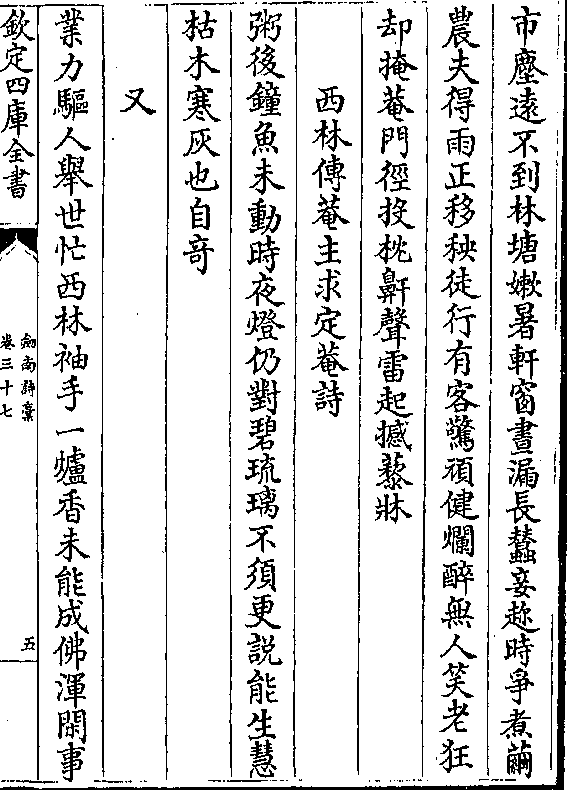 市塵逺不到林塘嫰暑軒窗晝漏長蠶妾趂時爭煮繭
農夫得雨正移秧徒行有客驚頑健爛醉無人笑老狂
却掩菴門徑投枕鼾聲雷起撼藜牀
西林傳菴主求定菴詩
粥後鐘魚未動時夜燈仍對碧琉璃不須更説能生慧
枯木寒灰也自竒
又
業力驅人舉世忙西林袖手一爐香未能成佛渾閒事
欽定四庫全書
劍南詩槀
卷三十七
五